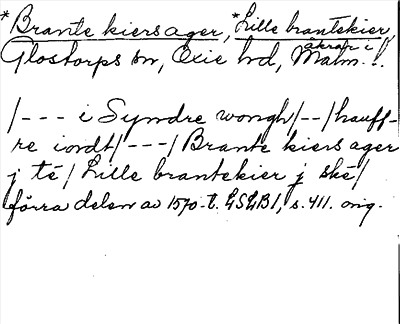 *Brante kiersager, *Lille brantekier,
åkrar i
Glostorps sn, Oxie hd, Malm. l.
/--- i Syndre wongh/--/hauff-
re iordt/---/Brante kiersager
j té/Lille brantekier j ské/
förra delen av 1570-t. LSLB1, s. 411. orig.